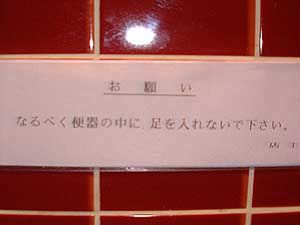 お願い
なるべく便器の中に、足を入れないで下さい。